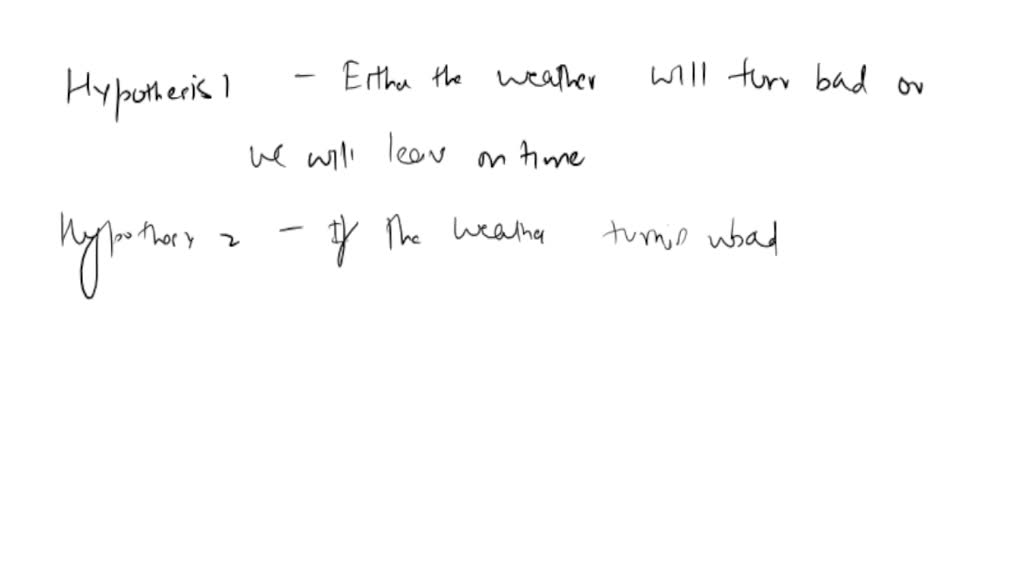 Hypotheris 1 - Eithu the weather will turn bad or
we will leav on time
Hypothery 2 - If The weathe turnis wbad